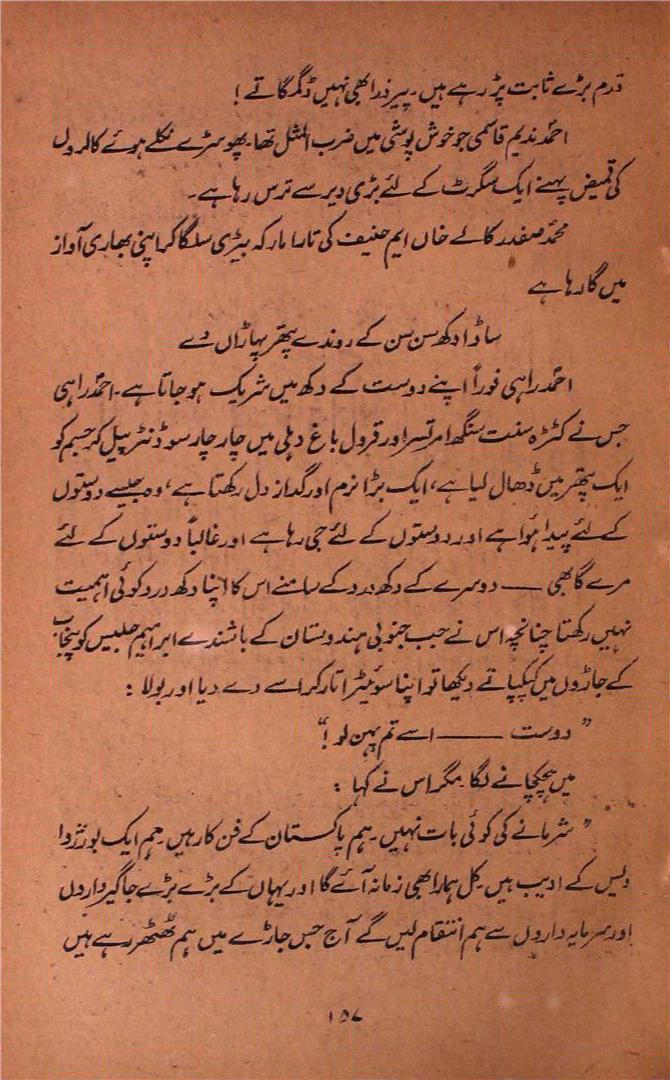 قدم بڑے ثابت پڑ رہے ہیں۔ پیر ذرا بھی نہیں ڈگمگاتے !
احمد ندیم قاسمی جو خوش پوشی میں ضرب المثل تھا۔ پھوسڑے نکلے ہوئے کالروں
کی قمیض پہنے ایک سگرٹ کے لئے بڑی دیر سے ترس رہا ہے۔
محمد صفدر کالے خاں ایم حنیف کی تارا مارکہ بیڑی سلگا کر اپنی بھاری آواز
میں گا رہا ہے
ساڈا دکھ سن سن کے روندے پتھر پہاڑاں دے
احمد راہی فوراً اپنے دوست کے دکھ میں شریک ہو جاتا ہے۔ احمد راہی
جس نے کٹڑہ سنت سنگھ امرتسر اور قرول باغ دہلی میں چار چار سو ڈنٹر پیل کر جسم کو
ایک پتھر میں ڈھال لیا ہے، ایک بڑا نرم اور گداز دل رکھتا ہے، وہ جیسے دوستوں
کے لئے پیدا ہوا ہے اور دوستوں کے لئے جی رہا ہے اور غالباً دوستوں کے لئے
مرے گا بھی ـــ دوسرے کے دکھ درد کے سامنے اس کا اپنا دکھ درد کوئی اہمیت
نہیں رکھتا چنانچہ اس نے جب جنوبی ہندوستان کے باشندے ابراہیم جلیس کو پنجاب
کے جاڑوں میں کپکپاتے دیکھا تو اپنا سوئیٹر اتار کر اسے دے دیا اور بولا :
” دوست ـــــ اسے تم پہن لو !“
میں ہچکچانے لگا۔ مگر اس نے کہا :
” شرمانے کی کوئی بات نہیں۔ ہم پاکستان کے فن کار ہیں۔ ہم ایک بورژوا
دیس کے ادیب ہیں۔ کل ہمارا بھی زمانہ آئے گا اور یہاں کے بڑے بڑے جاگیرداروں
اور سرمایہ داروں سے ہم انتقام لیں گے آج جس جاڑے میں ہم ٹھٹھر رہے ہیں
۱۵۷